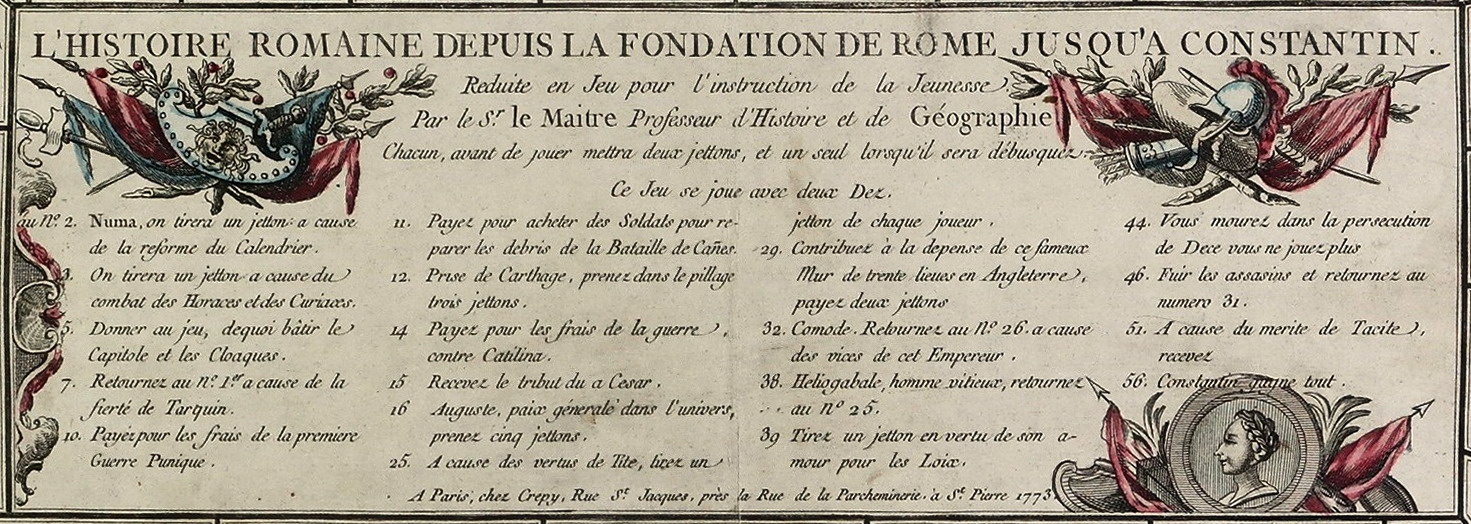 L'HISTOIRE ROMAINE DEPUIS LA FONDATION DE ROME JUSQU'A CONSTANTIN.
Reduite en Jeu pour l'instruction de la Jeunesse
Par le Sr le Maitre Professeur d'Histoire et de Géographie
Chacun, avant de jouer mettra deux jettons, et un seul lorsqu'il sera débusquez.
Ce Jeu se joue avec deux Dez.
au No. 2. Numa, on tirera un jetton a cause
de la reforme du Calendrier.
3. On tirera un jetton a cause du
combat des Horaces et des Curiaces.
5. Donner au jeu, dequoi bâtir le
Capitole et les Cloaques.
7. Retournez au No. 1er a cause de la
fierté de Tarquin.
10. Payez pour les frais de la premiere
Guerre Punique.
11. Payez pour acheter des Soldats pour re-
parer les debris de la Bataille de Cañes.
12. Prise de Carthage, prenez dans le pillage
trois jettons.
14 Payez pour les frais de la guerre,
contre Catilina.
15 Recevez le tribut du a Cesar.
16 Auguste, paix génerale dans l'univers,
prenez cinq jettons.
25. A cause des vertus de Tite, tirez un
jetton de chaque joueur.
29. Contribuez à la depense de ce fameux
Mur de trente lieues en Angleterre,
payez deux jettons
32. Comode. Retournez au No. 26. a cause
des vices de cet Empereur.
38. Heliogabale, homme vitieux, retournez
au no 25.
39 Tirez un jetton en vertu de son a-
mour pour les Loix.
44. Vous mourez dans la persecution
de Dece vous ne jouez plus
46. Fuir les assasins et retournez au
numero 31.
51. A cause du merite de Tacite,
recevez
56. Constantin gagne tout.
A Paris, chez Crepy, Rue St. Jacques, près la Rue de la Parcheminerie. à St. Pierre 1773.